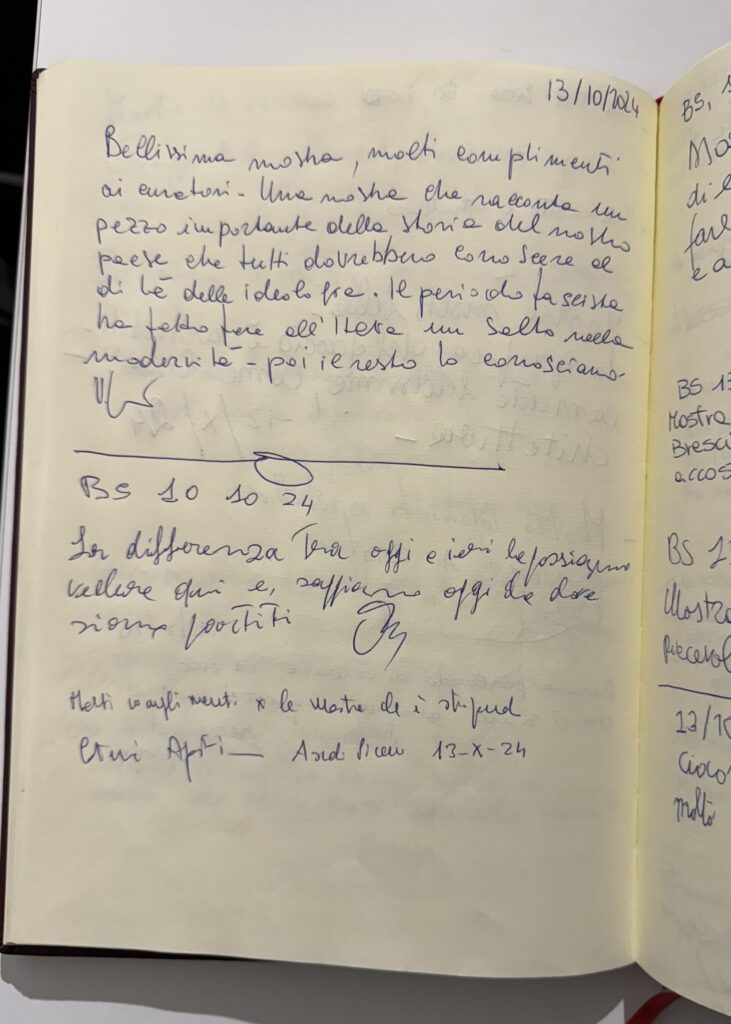 13/10/2024
Bellissima mostra, molti complimenti
ai curatori - Una mostra che racconta un
pezzo importante della storia del nostro
paese che tutti dovrebbero conoscere al
di là delle ideologie. Il periodo fascista
ha fatto fare all'Italia un salto nella
modernità - poi il resto lo conosciamo -
BS 10 10 24
La differenza tra oggi e ieri la possiamo
vedere qui e, sappiamo oggi da dove
siamo partiti
Molti complimenti x la mostra che è
13-X-24
BS,
Mos
di
far
e a
BS 13
Mostra
Bresci
accos
BS 13
Mostra
13/10
molto